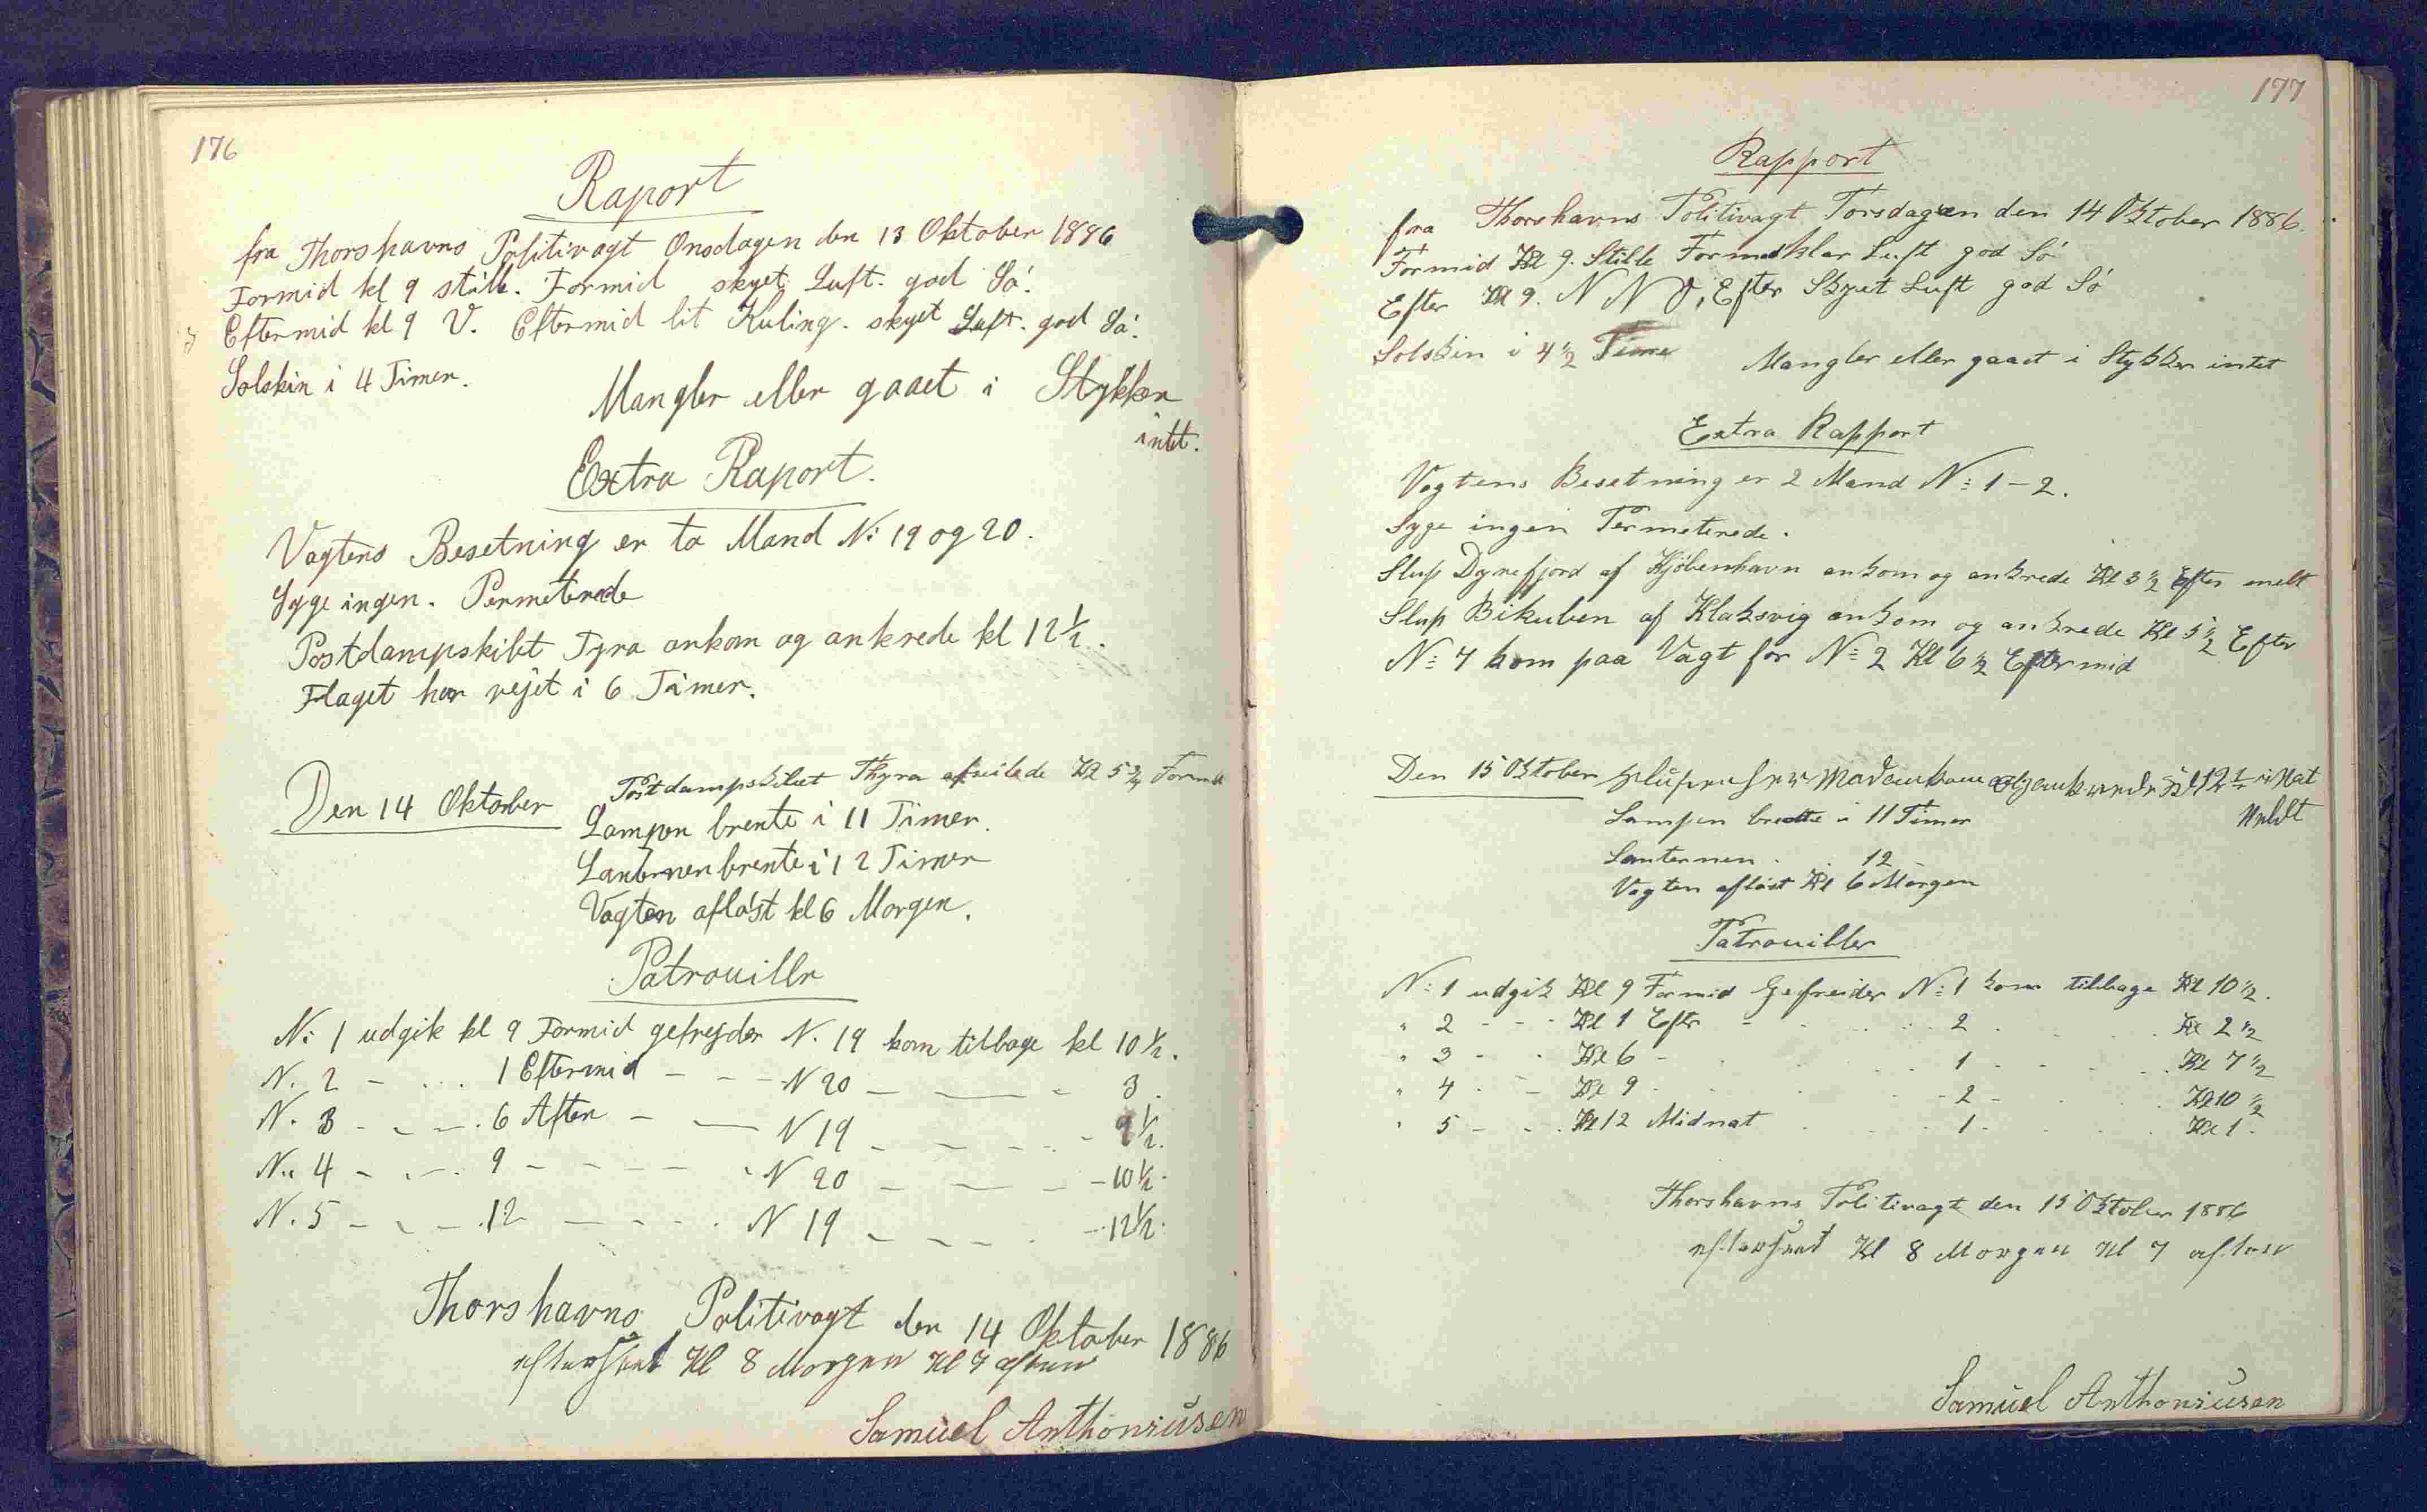 176
Raport
fra Thorshavns Politivagt Onsdagen den 13 Oktober 1886
Formid kl 9 stille. Formid skyet Luft. god Sö.
Eftermid kl 9 V. Eftermid lit Kuling. skyet Luft. god Sö.
Solskin i 4 Timer.
Mangler eller gaaet i Stykker
intet.
Extra Raport.
Vagtens Besetning er to Mand N: 19 og 20.
Syge ingen. Permeterede
Postdampskibet Tyra ankom og ankrede kl 12 1/2.
Flaget har vejet i 6 Timer.
Den 14 Oktober
Postdampskibet Thyra afseilede Kl 5 3/4 Formid
Lampen brente i 11 Timer.
Lanternen brente i 12 Timer
Vagten aflöst kl 6 Morgen.
Patrouille
N: 1 udgik kl 9 Formid gefrejder N. 19 kom tilbage kl 10 1/2.
N. 2 - - - - 1 Eftermid - - - N 20 - - - 3.
N. 3 - - - . 6 Aften - - N 19 - - - - 9 1/2.
N. 4 - - - . 9 - - - - - N 20 - - - 10 1/2.
N. 5 - - - . 12 - - - . . N 19 - - - . - 12 1/2.
Thorshavns Politivagt den 14 Oktober 1886
efterseet Kl 8 Morgen Kl 7 aften
Samuel Anthoniusen
177
Rapport
fra Thorshavns Politivagt Torsdagen den 14 Oktober 1886.
Formid Kl 9. Stille Formid klar Luft god Sö
Efter Kl 9. N N O, Efter Skyet Luft god Sö
Solskin i 4 1/2 Time
Mangler eller gaaet i Stykker intet
Extra Rapport
Vagtens Besetning er 2 Mand N: 1 - 2.
Syge ingen Permeterede.
Slup Dyrefjord af Kjöbenhavn ankom og ankrede Kl 3 1/2 Efter melt
Slup Bikuben af Klaksvig ankom og ankrede Kl 5 1/2 Efter
N: 7 kom paa Vagt for N: 2 Kl 6 1/2 Eftermid
Den 15 Oktober
ankom og ankrede Kl 12 1/2 i Nat
Meldt
Lampen brente i 11 Timer
Lanternen . 12
Vagten aflöst Kl 6 Morgen
Patrouiller
N: 1 udgik Kl 9 Formid Gefreider N: 1 kom tilbage Kl 10 1/2.
" 2 - - - Kl 1 Efter - . . . 2 . . . Kl 2 1/2
" 3 - - Kl 6 - . . . 1 . - - . Kl 7 1/2
" 4 - - Kl 9 . . . . - 2 - . . Kl 10 1/2
" 5 - - . Kl 12 Midnat . . . 1 . . . Kl 1.
Thorshavns Politivagt den 15 Oktober 1886
efterseet Kl 8 Morgen Kl 7 aften
Samuel Anthoniusen